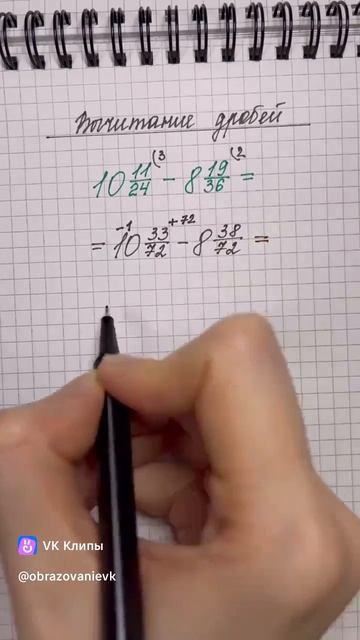 Вычитание дробей
10 11/24 (3 - 8 19/36 (2 =
= 10 -1 33/72 +72 - 8 38/72 =
VK Клипы
@obrazovanievk